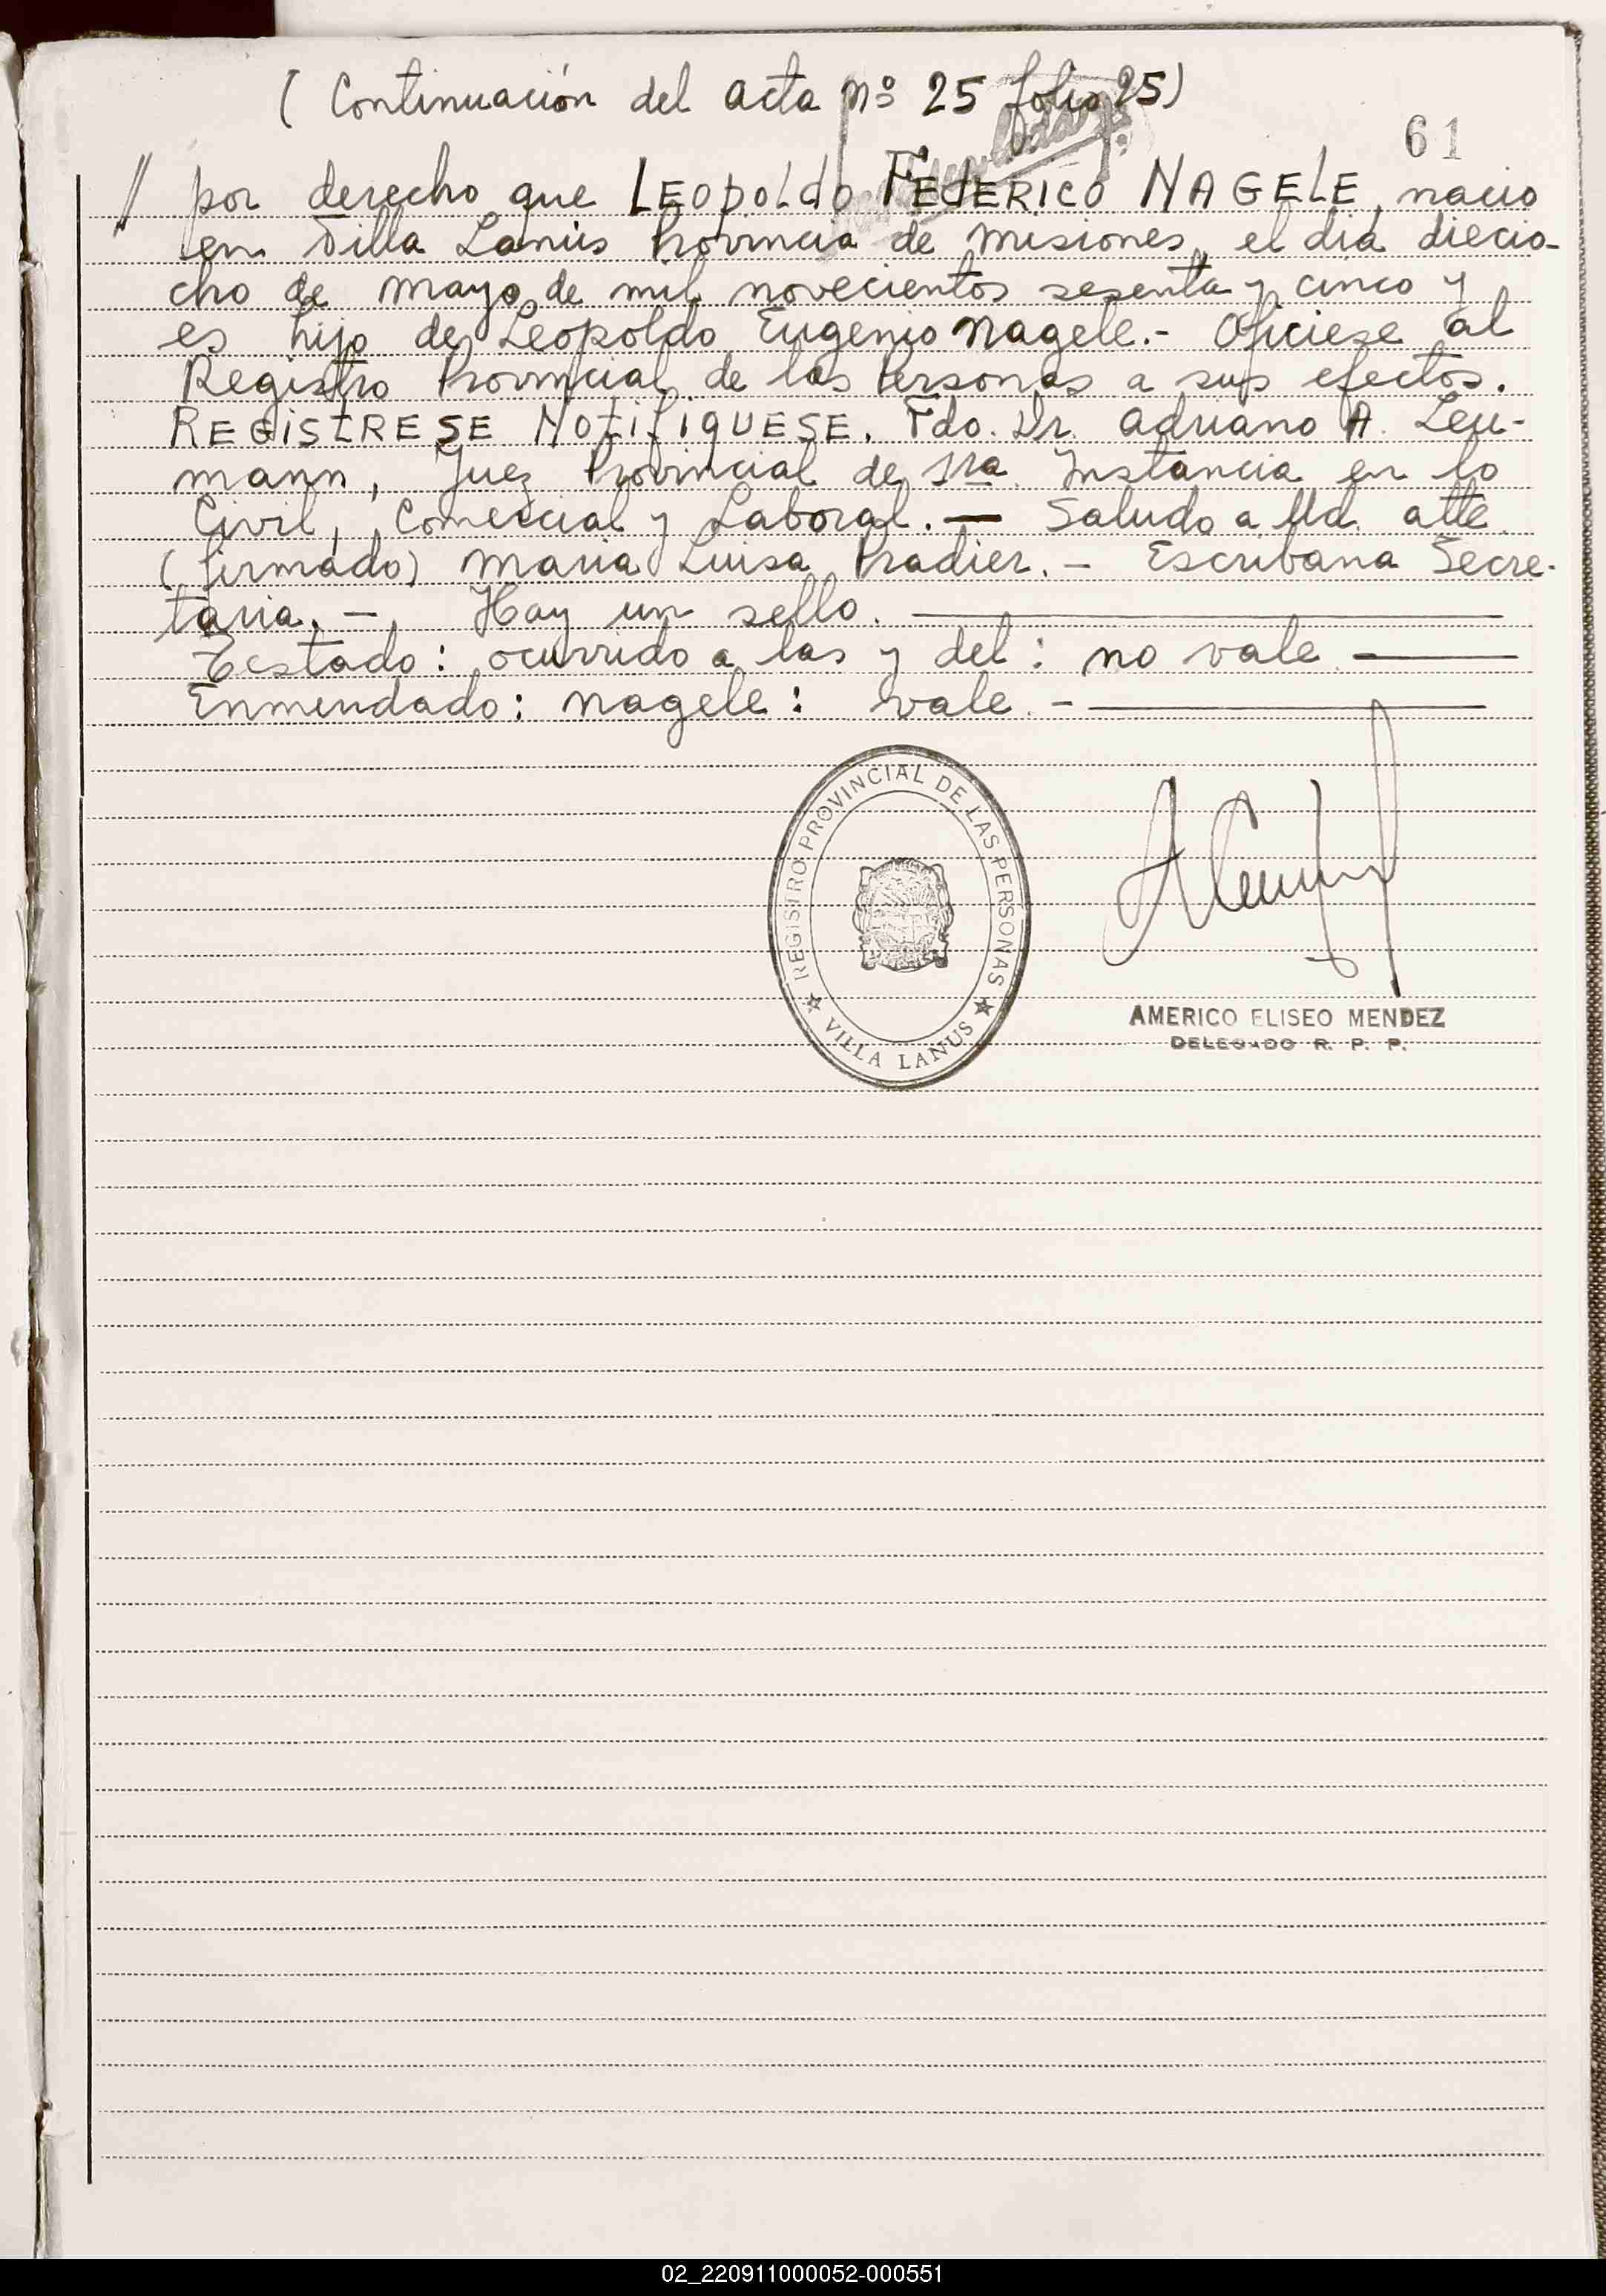 ( Continuación del acta nº 25 folio 25)
61
// por derecho que LEOPOLDO FEDERICO NAGELE, nacio
en Villa Lanús Provincia de Misiones, el dia diecio-
cho de mayo de mil novecientos sesenta y cinco y
es hijo de Leopoldo Eugenio Nagele.- Oficiese al
Registro Provincial de las Personas a sus efectos.
REGISTRESE NOTIFIQUESE. Fdo. Dr. Adriano A. Leu-
mann, Juez Provincial de 1ra. Instancia en lo
Civil, Comercial y Laboral. — Saludo a Ud. atte.
(firmado) Maria Luisa Pradier. - Escribana Secre-
taria. - Hay un sello.
Testado: ocurrido a las y del: no vale.
Enmendado: nagele: vale. -
REGISTRO PROVINCIAL DE LAS PERSONAS
VILLA LANUS
AMERICO ELISEO MENDEZ
DELEGADO R. P. P.
02_220911000052-000551